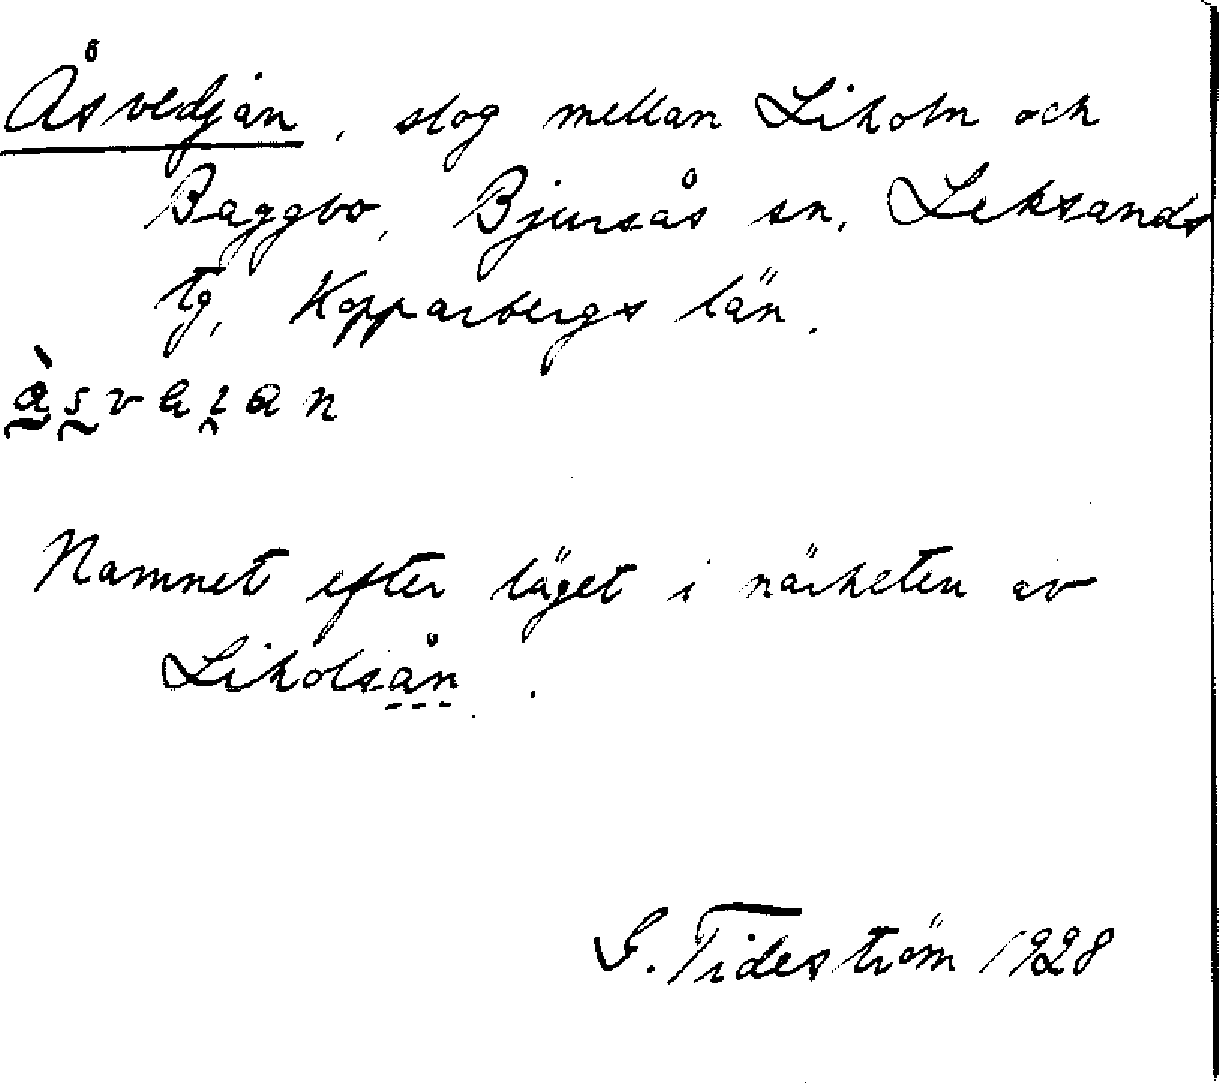 Åsvedjan, slog mellan Liholn och
Baggbo, Bjursås sn, Leksands
tg, Kopparbergs län.
Namnet efter läget i närheten av
Liholsån.
G. Tideström 1928